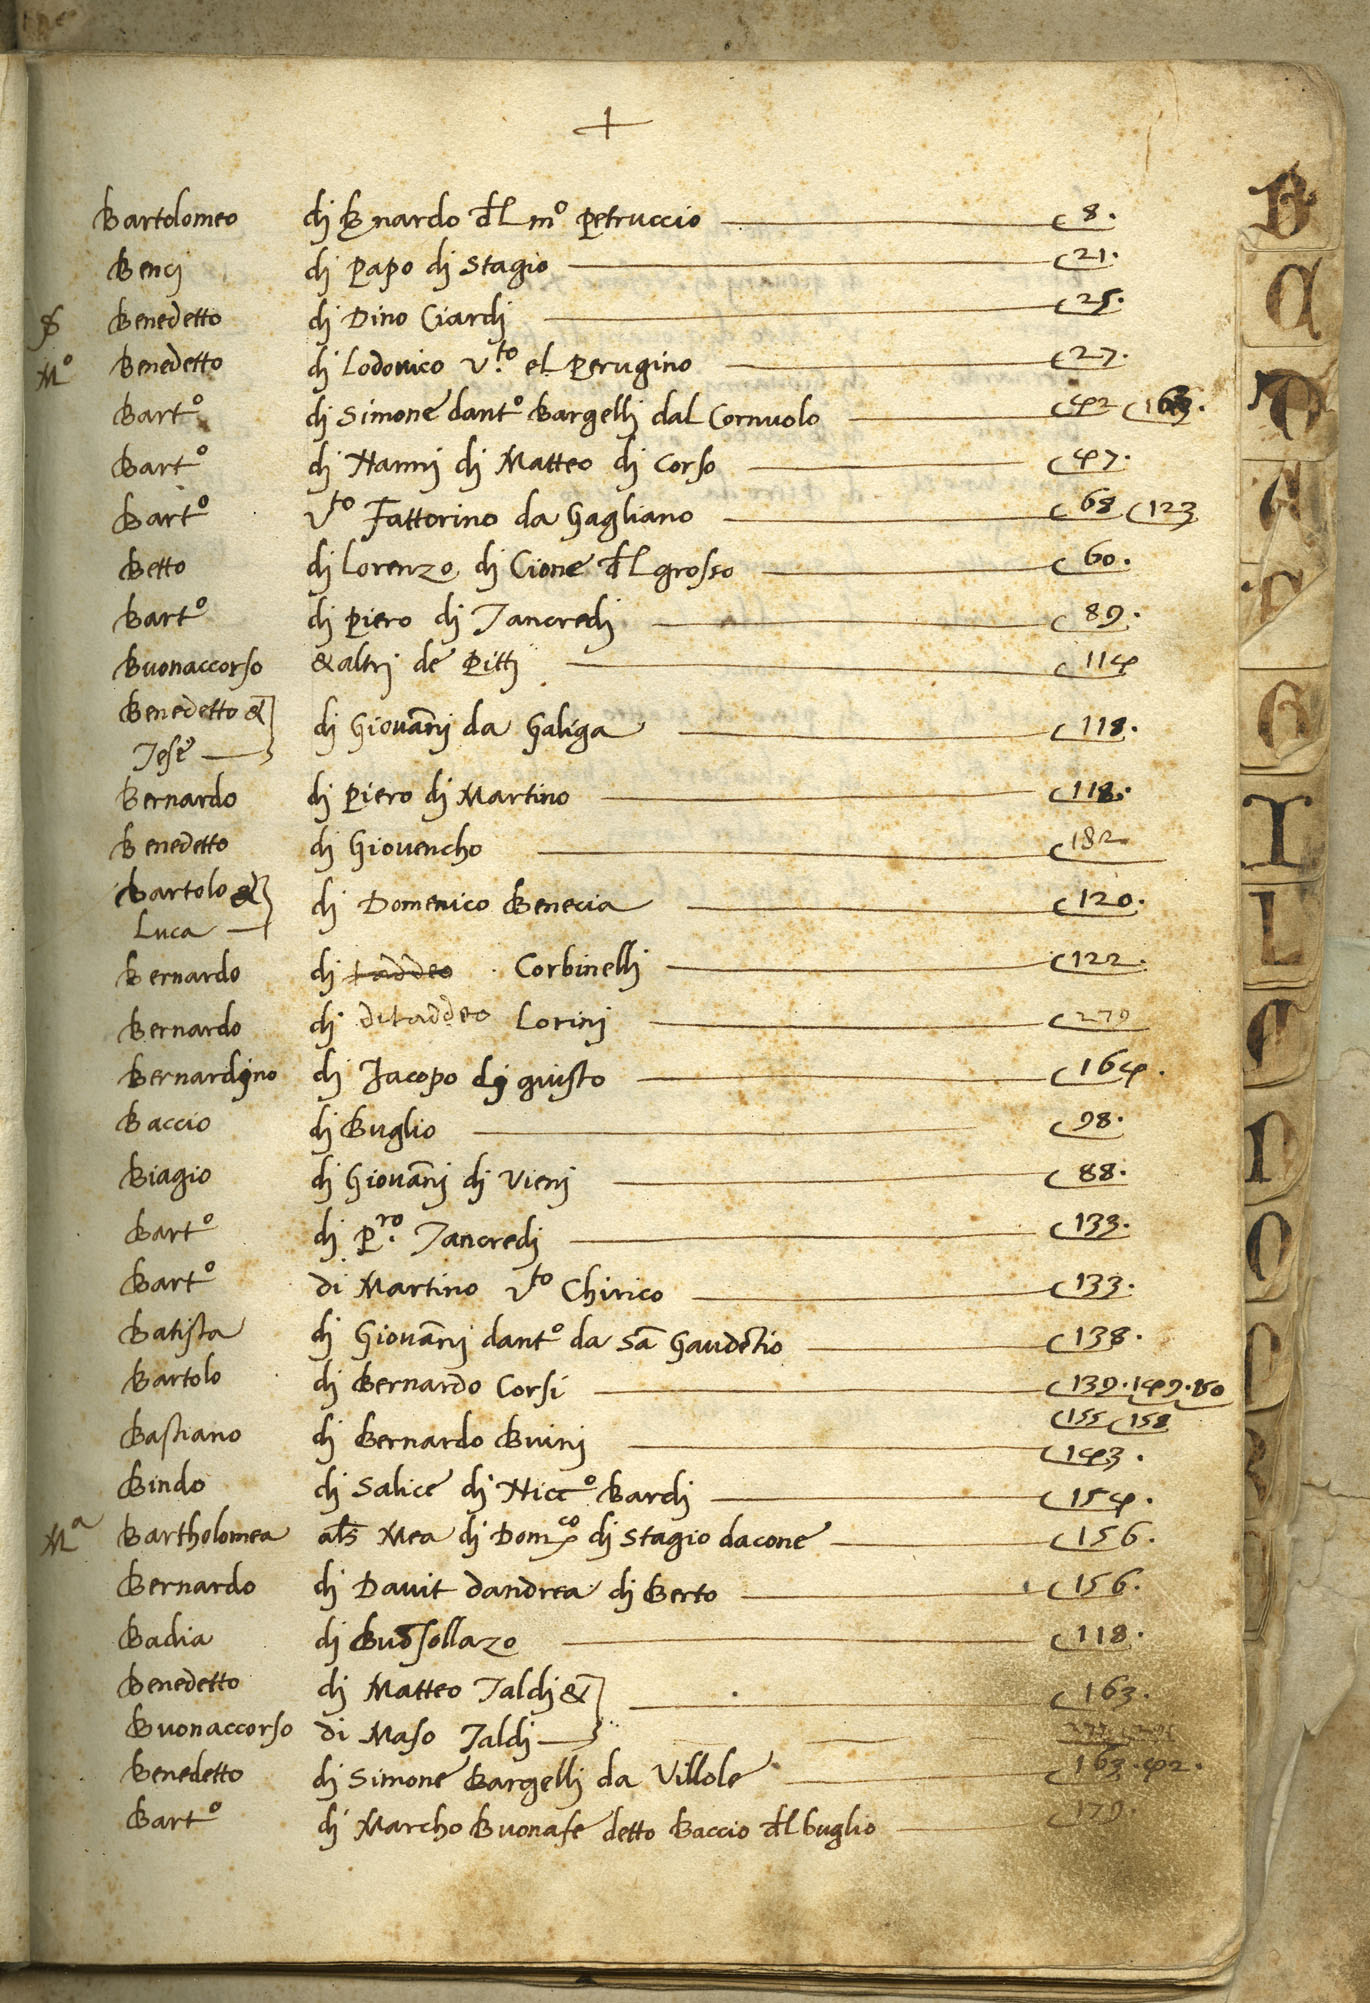 +
B
Bartolomeo di Bnardo dl mº Petruccio c 8.
Benci di Papo di Stagio c 21.
Benedetto di Dino Ciardi c 25.
Mº Benedetto di Lodovico v.to el Perugino c 27.
Bartº di Simone dantº Bargelli dal Cornuolo c 42 c 163.
Bartº di Nanni di Matteo di Corso c 47.
Bartº vto Fattorino da Gagliano c 68 c 123
Betto di Lorenzo di Cione dl grosso c 60.
Bartº di Piero di Tancredi c 89.
Buonaccorso & altri de Pitti c 114
Benedetto &
Jese di Giovāni da Galiga c 118.
Bernardo di Piero di Martino c 118.
Benedetto di Giovencho c 182
Bartolo &
Luca di Domenico Benecia c 120.
Bernardo di taddeo Corbinelli c 122.
Bernardo di ditaddeo Lorini c 279
Bernardino di Jacopo di giusto c 164.
Baccio di Buglio c 98.
Biagio di Giovāni di Vieni c 88.
Bartº di P.ro Tancredi c 133.
Bartº di Martino vto Chirico c 133.
Batista di Giovāni dantº da Sā Gaudētio c 138.
Bartolo di Bernardo Corsi c 139. 149. 150
c 155 c 158
Bastiano di Bernardo Buini c 143.
Bindo di Salice di Niccº Bardi c 154.
Mª Bartholomea als Mea di Domco di Stagio dacone c 156.
Bernardo di Davit dandrea di Berto c 156.
Badia di Buōsollazo c 118.
Benedetto di Matteo Taldi & c 163.
Buonaccorso di Maso Taldi
Benedetto di Simone Bargelli da Villole c 163. 42.
Bartº di Marcho Buonafe detto Baccio dl buglio c 179.
G
I
L
N
O